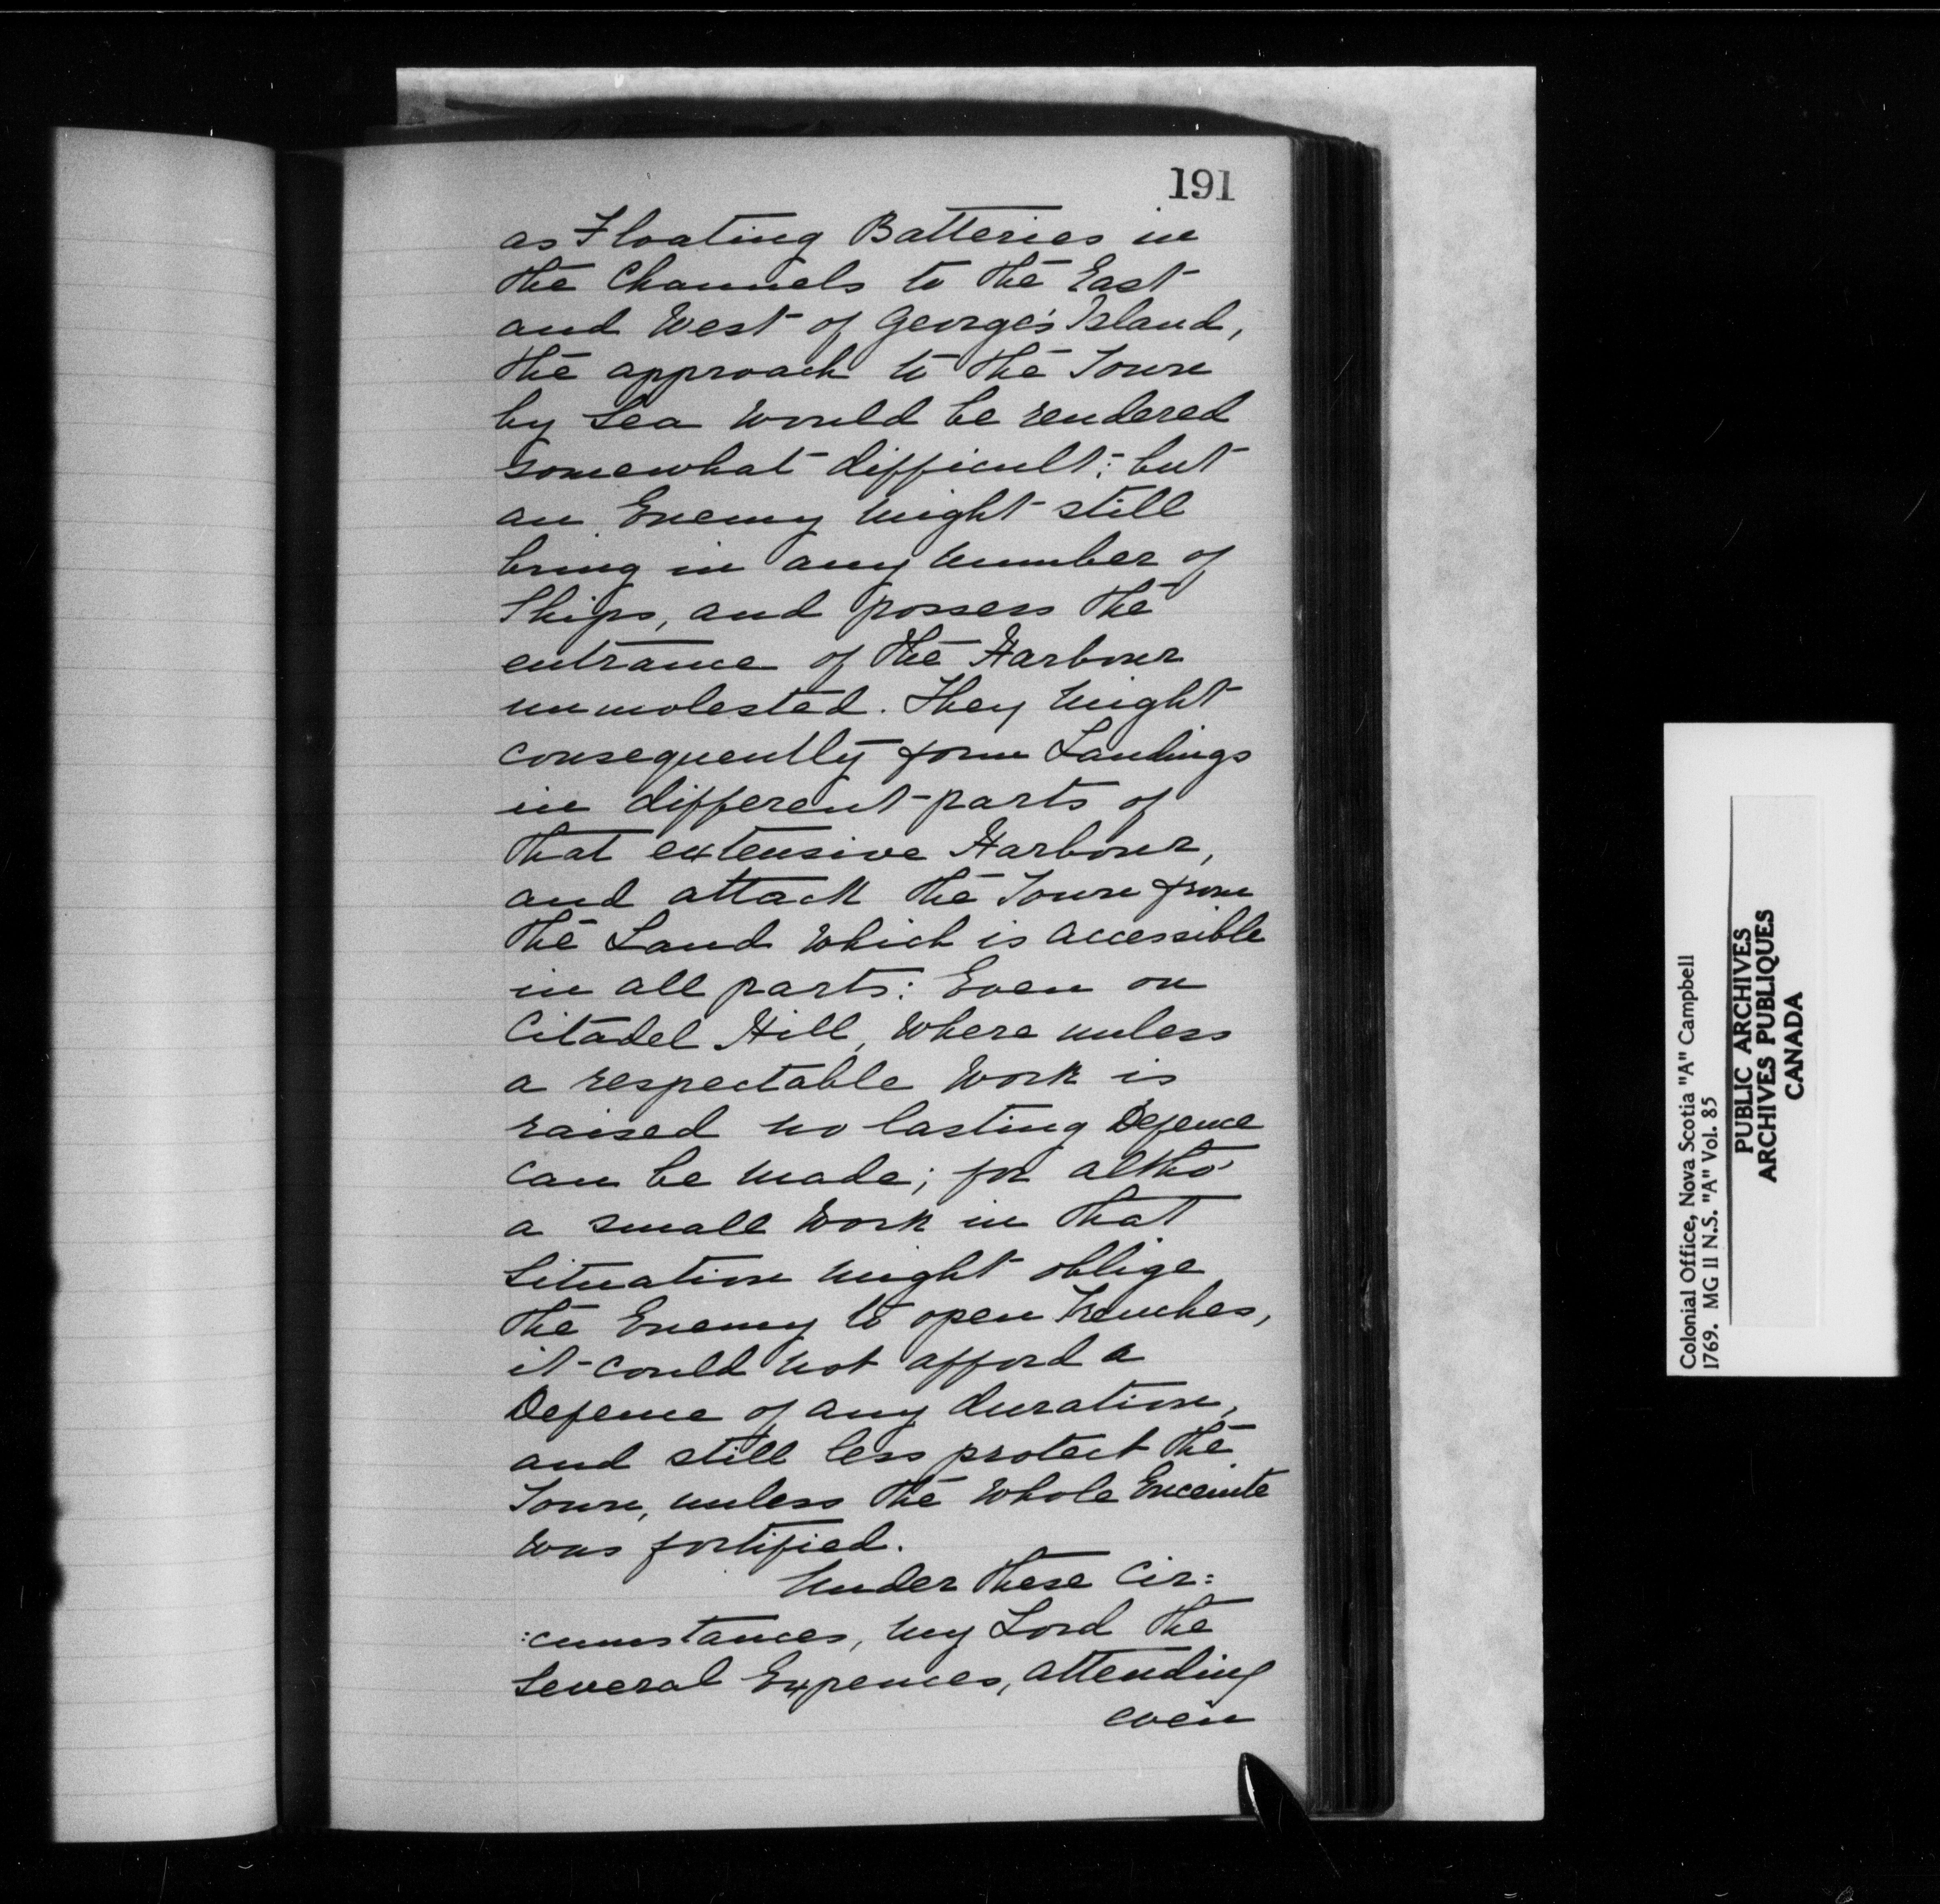 191
as Floating Batteries in
the Channels to the East
and West of George's Island,
the approach to the Town
by Sea would be rendered
somewhat difficult: but
an Enemy might still
bring in any number of
Ships, and possess the
entrance of the Harbour
unmolested. They might
consequently form Landings
in different parts of
that extensive Harbour,
and attack the Town from
the Land which is accessible
in all parts: Even on
Citadel Hill, where unless
a respectable Work is
raised no lasting Defence
can be made; for altho'
a small Work in that
Situation might oblige
the Enemy to open Trenches,
it could not afford a
Defence of any duration,
and still less protect the
Town, unless the whole Enceinte
was fortified.
Under these Cir:
:cumstances, my Lord the
Several Expences, attending
even
Colonial Office, Nova Scotia "A" Campbell
1769. MG 11 N.S. "A" Vol. 85
PUBLIC ARCHIVES
ARCHIVES PUBLIQUES
CANADA